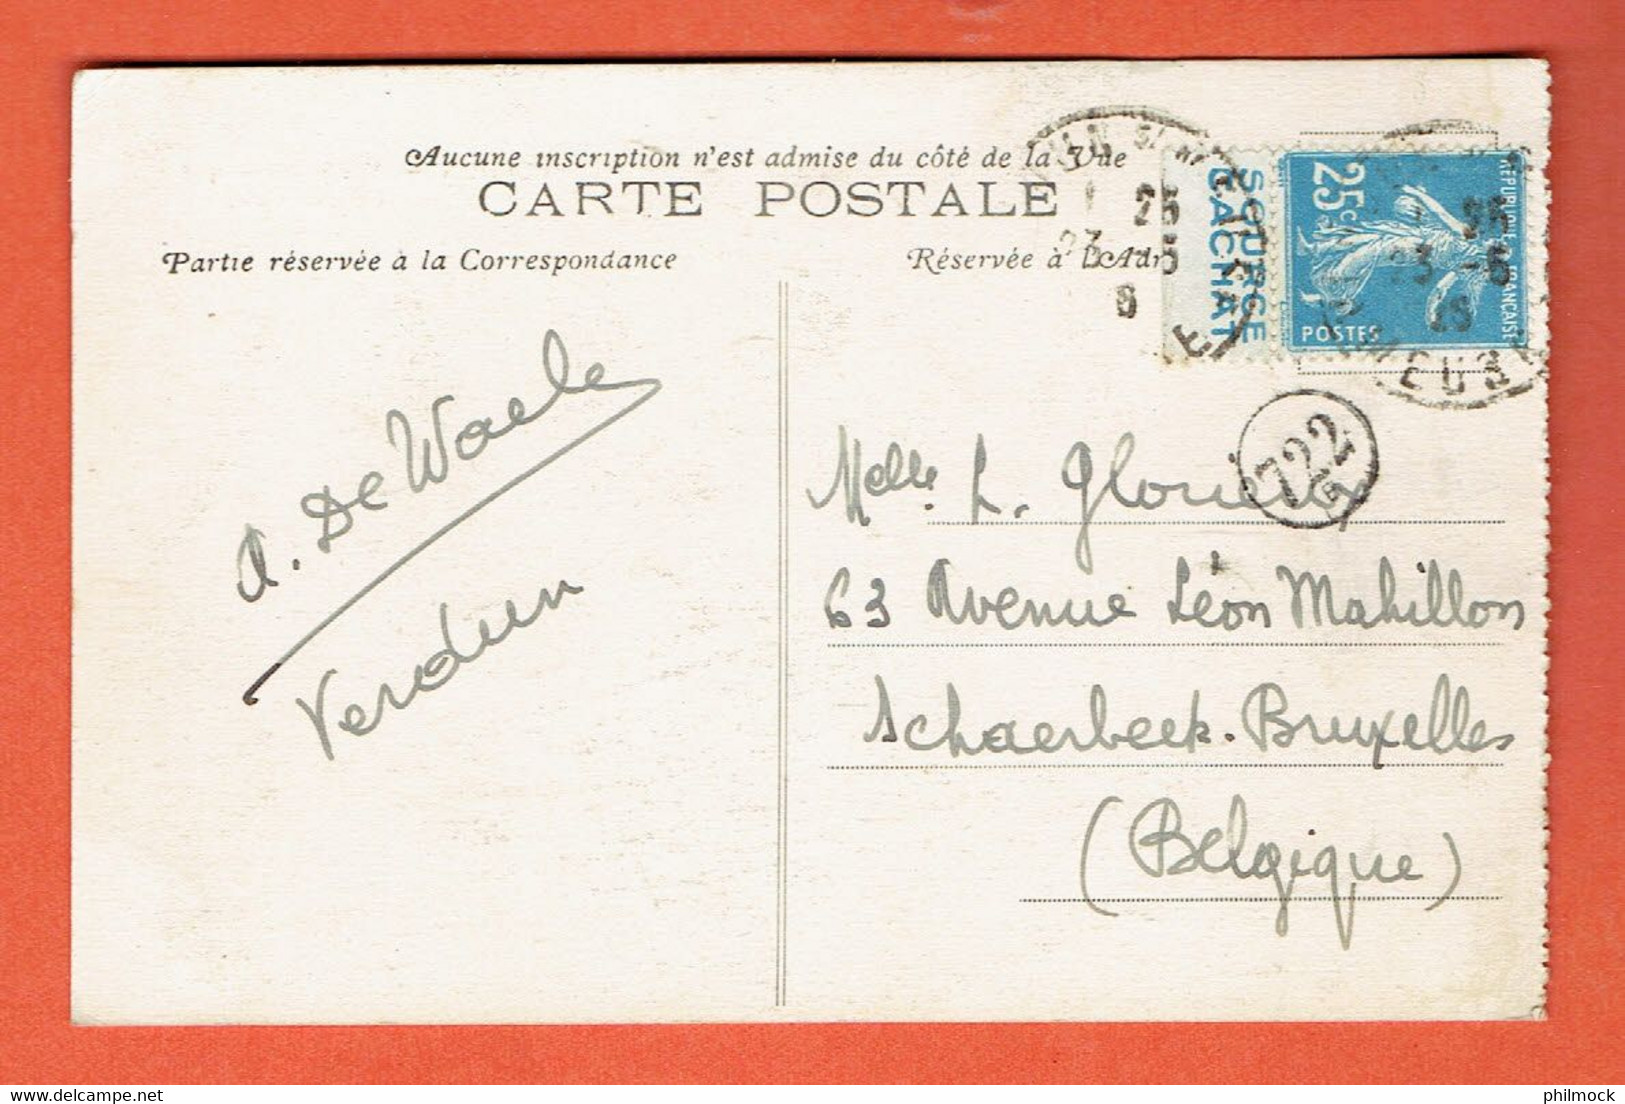 Aucune inscription n'est admise du côté de la Vue
CARTE POSTALE
Partie réservée à la Correspondance
Réservée à L'Adr
SOURCE
BACHAT
25c
REPUBLIQUE FRANÇAISE
POSTES
25
23 -5
MEUSE
722
A. De Waele
Verdun
Melle. L. Glorieux
63 Avenue Léon Mahillon
Schaerbeek-Bruxelles
(Belgique)
philmock